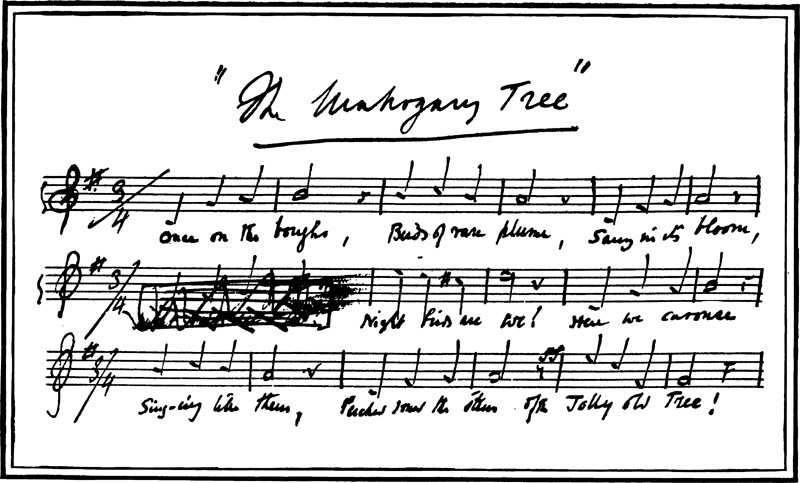 "The Mahogany Tree"
3/4
Once on the boughs, Birds of rare plume, Sang in its bloom,
3/4
Night birds are we! Here we carouse
3/4
Sing-ing like them, Perched round the of the Jolly old Tree!